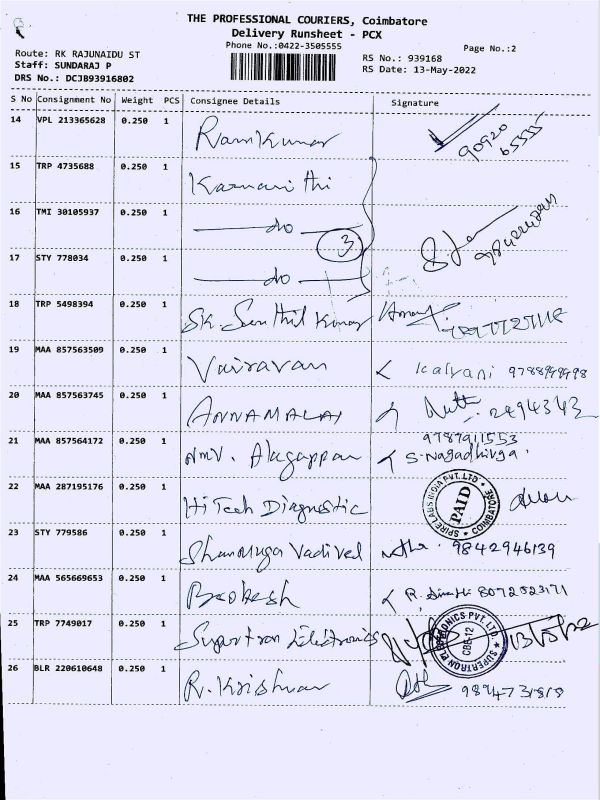 THE PROFESSIONAL COURIERS, Coimbatore
Delivery Runsheet - PCX
Phone No.:0422-3505555
Page No.:2
Route: RK RAJUNAIDU ST
Staff: SUNDARAJ P
DRS No.: DCJB93916802
RS No.: 939168
RS Date: 13-May-2022
S No Consignment No Weight PCS Consignee Details Signature
14 VPL 213365628 0.250 1 RamKumar 90920 65555
15 TRP 4735688 0.250 1
16 TMI 30105937 0.250 1 do
3
17 STY 778034 0.250 1 do
18 TRP 5498394 0.250 1 SK. Senthil Kumar
19 MAA 857563509 0.250 1 Vairavan Kalyani
20 MAA 857563745 0.250 1 ANNAMALAI
21 MAA 857564172 0.250 1 Alagappan 9787911553
22 MAA 287195176 0.250 1 HiTech Diagnostic
SPIRE LABS INDIA PVT.LTD. PAID COIMBATORE
23 STY 779586 0.250 1 Shanmuga Vadivel 9842946139
24 MAA 565669653 0.250 1 R.
25 TRP 7749017 0.250 1 Supertron Electronics 13/5/22
SUPERTRON ELECTRONICS PVT. LTD. CBE-12
26 BLR 220610648 0.250 1 R. Krishnan